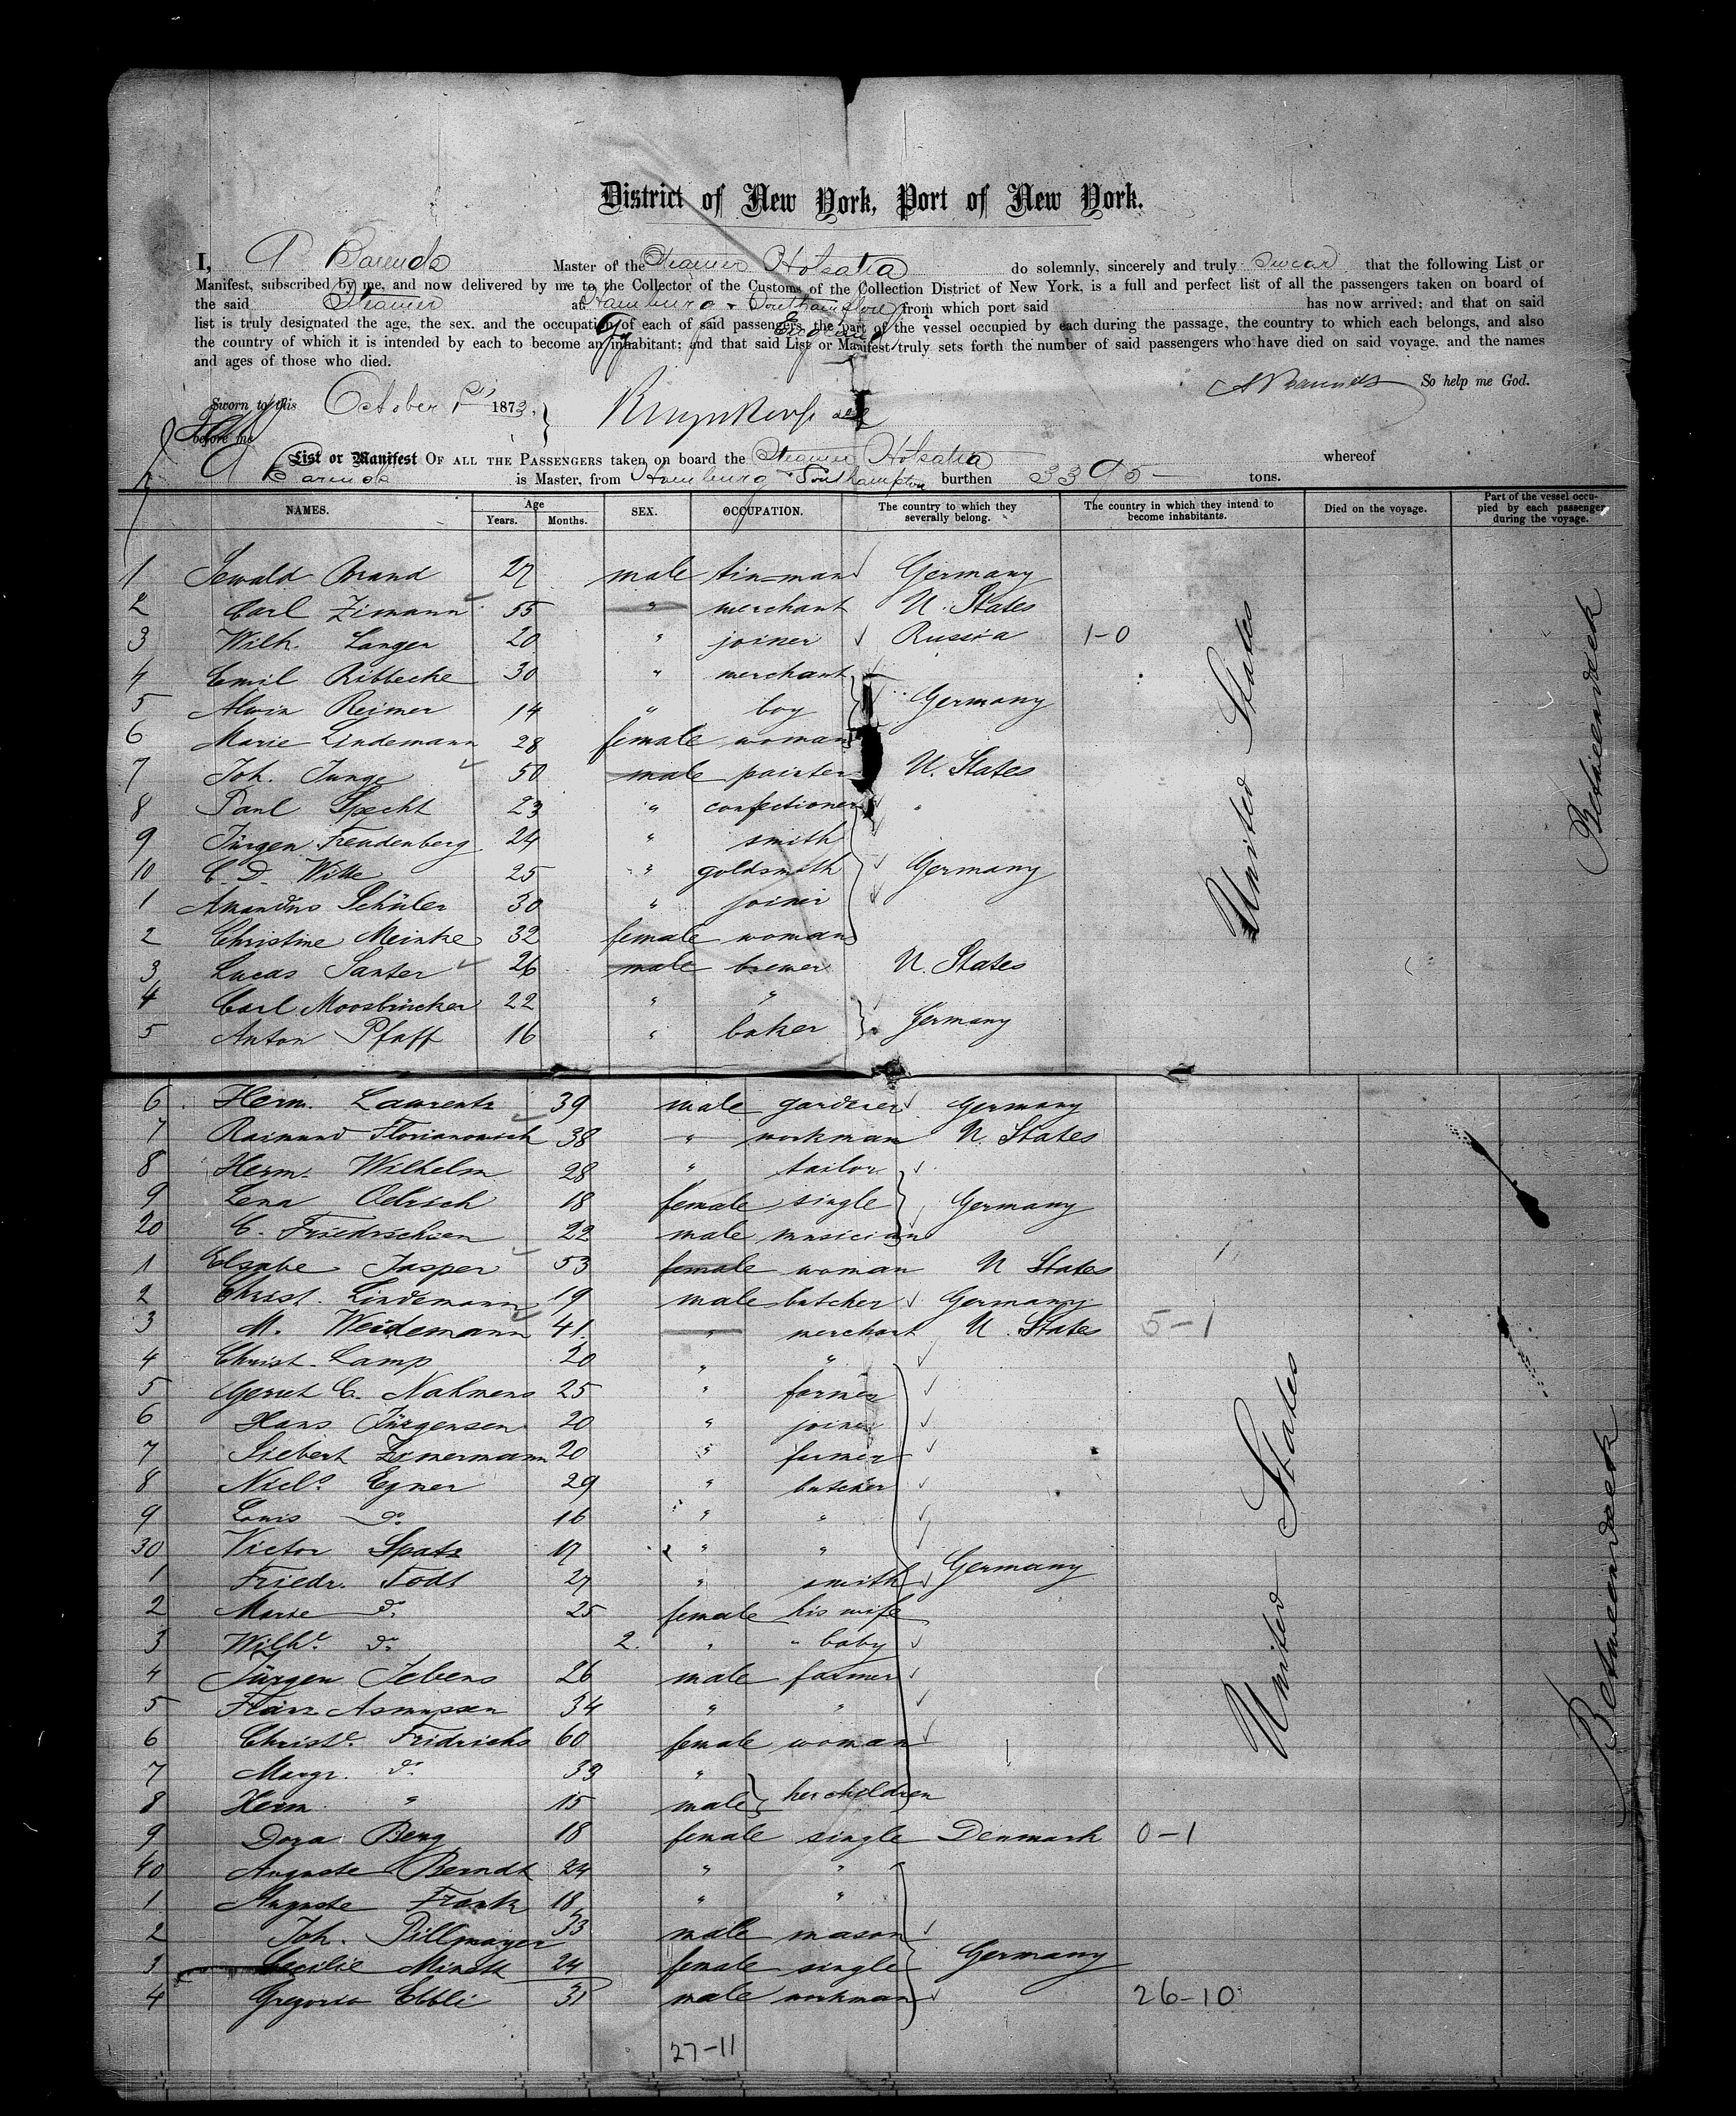 District of New York, Port of New York.
I, A Barends Master of the Steamer Holsatia do solemnly, sincerely and truly swear that the following List or
Manifest, subscribed by me, and now delivered by me to the Collector of the Customs of the Collection District of New York, is a full and perfect list of all the passengers taken on board of
the said Steamer at Hamburg & Southampton from which port said has now arrived; and that on said
list is truly designated the age, the sex, and the occupation of each of said passengers, the part of the vessel occupied by each during the passage, the country to which each belongs, and also
the country of which it is intended by each to become an inhabitant; and that said List or Manifest truly sets forth the number of said passengers who have died on said voyage, and the names
and ages of those who died.
So help me God.
A Barends
Sworn to this October 1st 1873,
before me
List or Manifest OF ALL THE PASSENGERS taken on board the Steamer Holsatia whereof
A Barends is Master, from Hamburg & Southampton burthen 3395 tons.
NAMES. Age Years. Months. SEX. OCCUPATION. The country to which they severally belong. The country in which they intend to become inhabitants. Died on the voyage. Part of the vessel occupied by each passenger during the voyage.
1 Sewald Brand 27 male tin=man Germany
2 Carl Zimann 55 " merchant U. States
3 Wilh. Langer 20 " joiner Russia 1-0
4 Emil Ribbecke 30 " merchant
5 Alwin Reimer 14 " boy Germany
6 Marie Lindemann 28 female woman
7 Joh. Junge 50 male painter U. States
8 Paul Specht 23 " confectioner
9 Jürgen Freudenberg 24 " smith
10 C. D. Witte 25 " goldsmith Germany
1 Amandus Schüler 30 " joiner
2 Christine Meinke 32 female woman
3 Lucas Santer 26 male brewer U. States
4 Carl Moosbrücker 22 " "
5 Anton Pfaff 16 " baker Germany
United States
Betweendeck
6 Herm. Laurentz 39 male gardener Germany
7 Raimund Florianowich 38 " workman U. States
8 Herm. Wilhelm 28 " tailor
9 Lena Oelrich 18 female single Germany
20 C. Friedrichsen 22 male musician
1 Elsabe Jasper 53 female woman U States
2 Christ. Lindemann 19 male butcher Germany
3 M. Weidemann 41 " merchant U. States 5-1
4 Christ. Lamp 20 " "
5 Gerret C. Nahmens 25 " farmer
6 Hans Jürgensen 20 " joiner
7 Siebert Zimermann 20 " farmer
8 Nicls. Egner 29 " butcher
9 Louis do 16 " "
30 Victor Spatz 17 " "
1 Friedr. Todt 27 " smith Germany
2 Marie do 25 female his wife
3 Wilhe. do 2 " " baby
4 Jürgen Jebens 26 male farmer
5 Franz Asmussen 34 " "
6 Christe. Fridrichs 60 female woman
7 Margr. do 33 "
8 Herm. " 15 male } her children
9 Dora Berg 18 female single Denmark 0-1
40 Auguste Berndt 24 " "
1 Auguste Frank 18 " "
2 Joh. Pillmayer 33 male mason
3 Cecilie Minck 24 female single Germany
4 Gregorio Ebbli 31 male workman 26-10
United States
Betweendeck
27-11